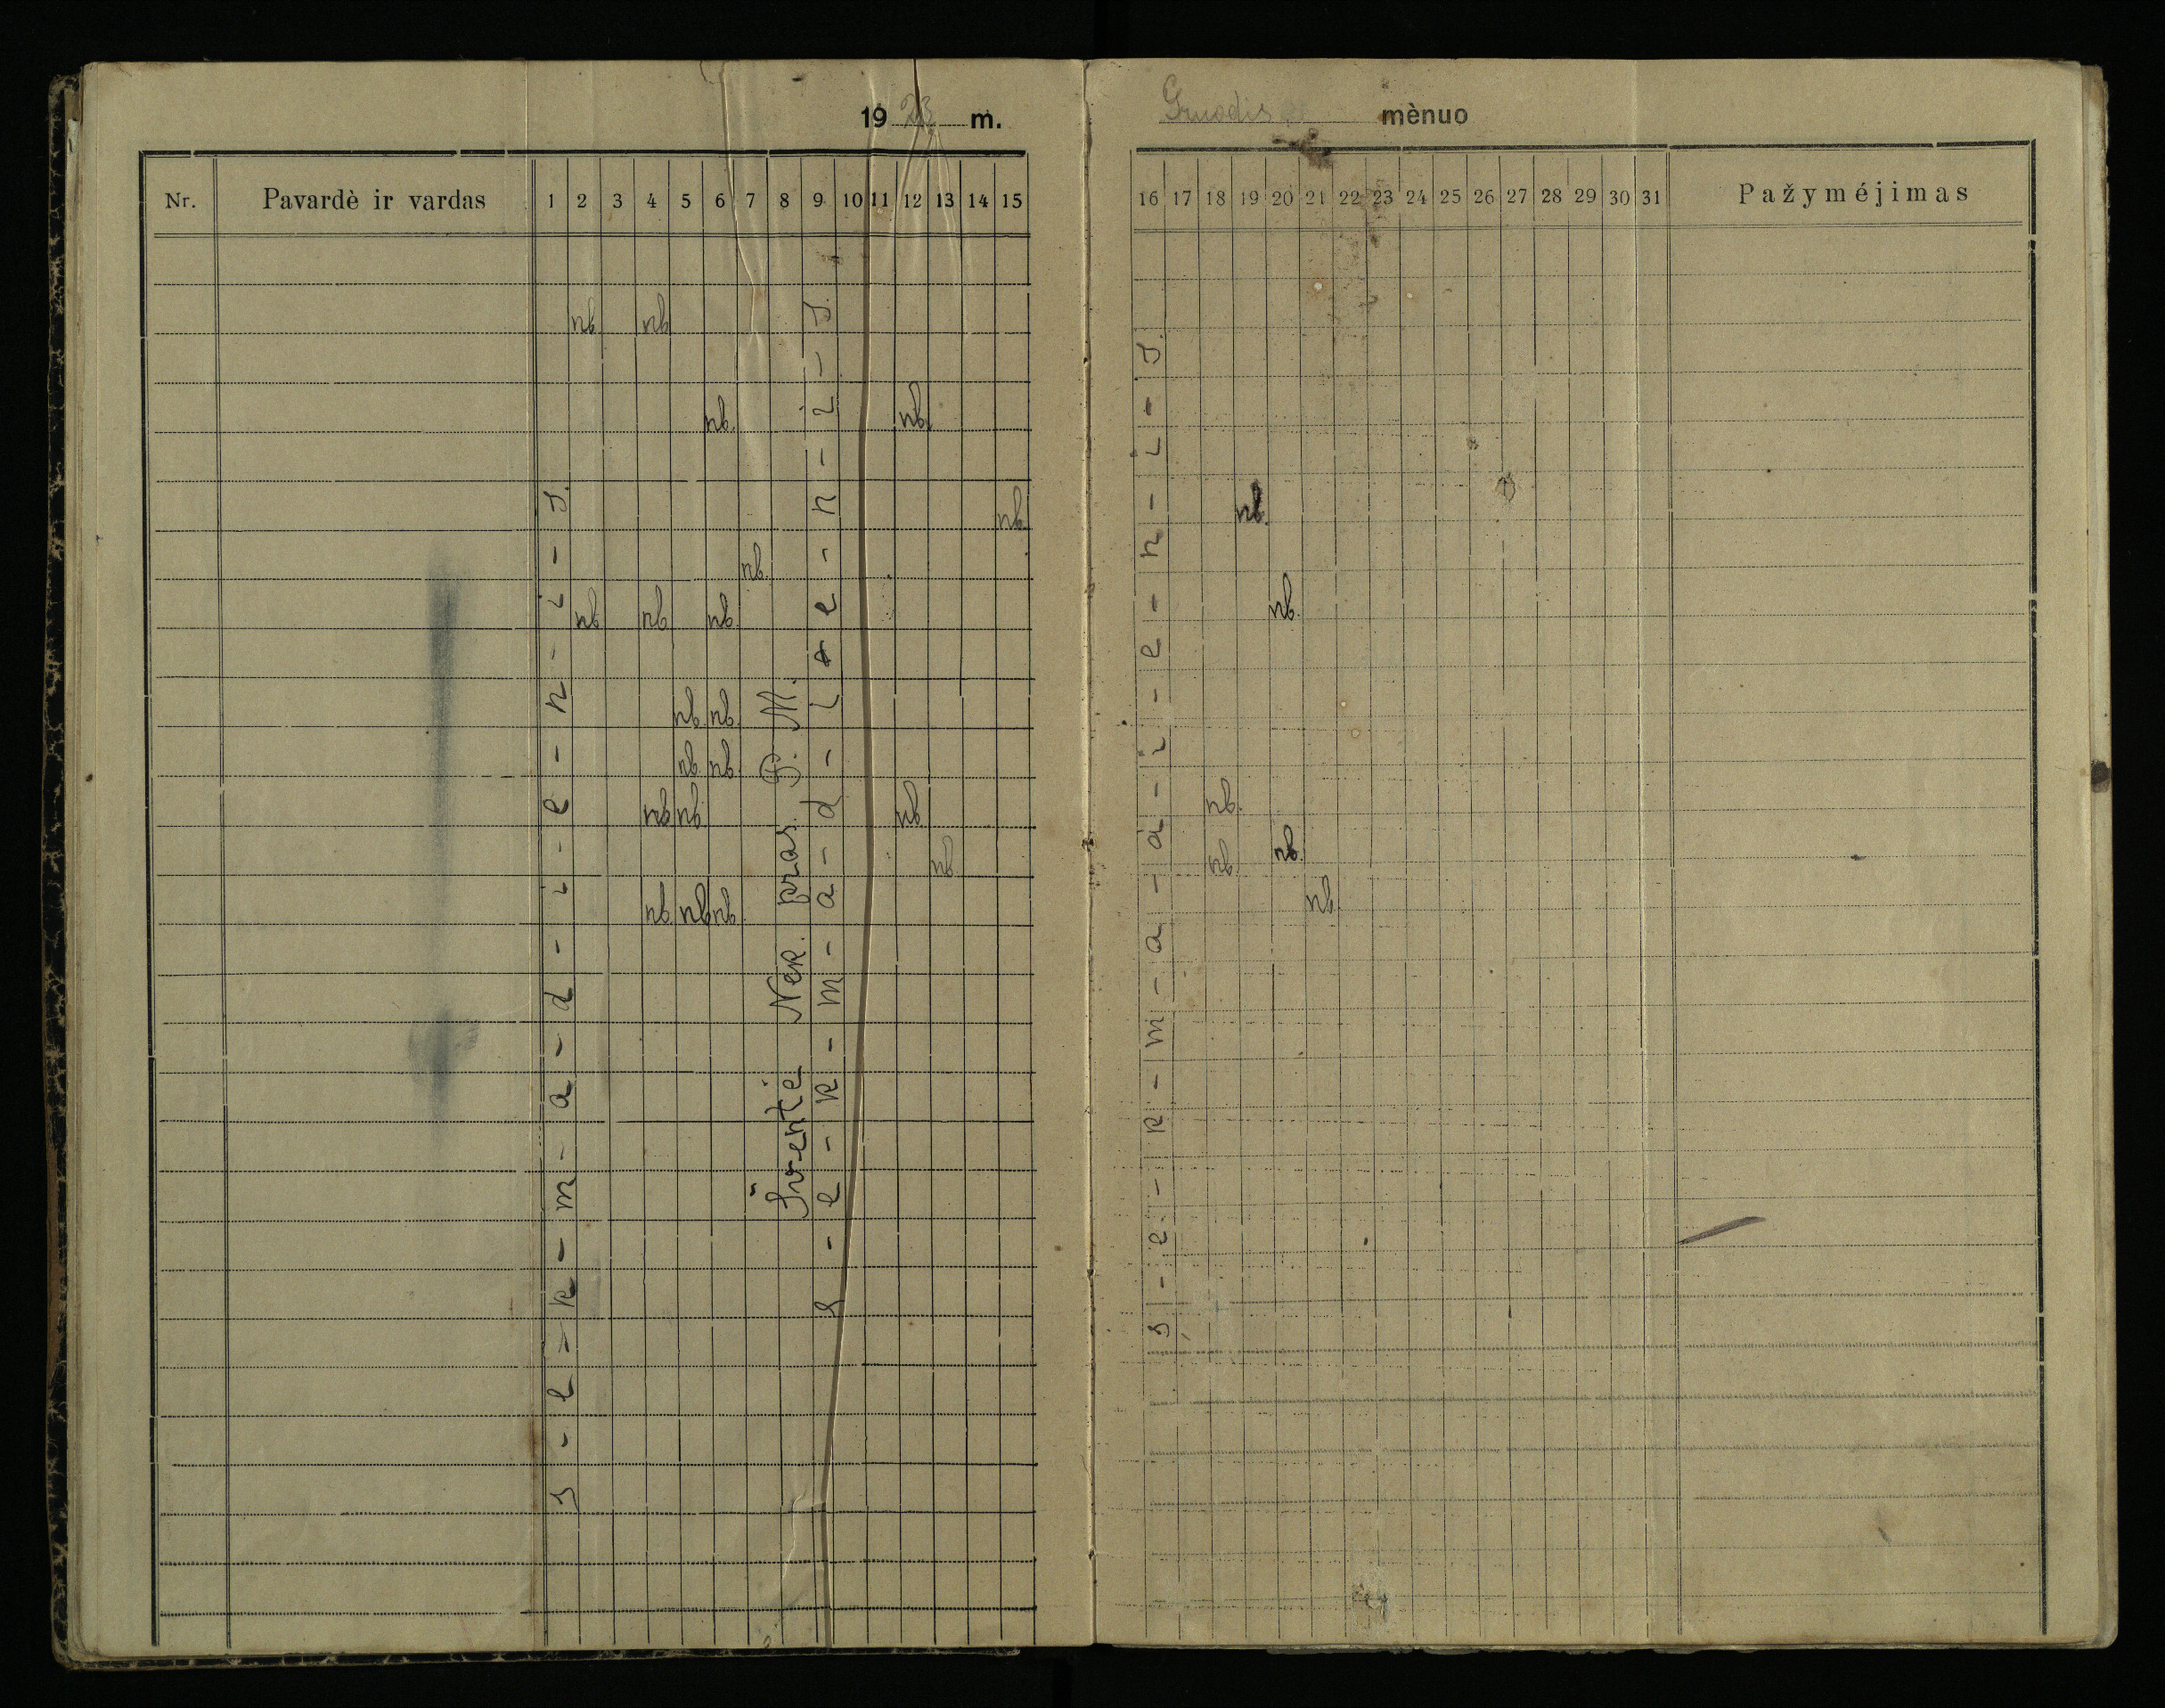 1923 m. Gruodis mėnuo
Nr. Pavardė ir vardas 1 2 3 4 5 6 7 8 9 10 11 12 13 14 15 16 17 18 19 20 21 22 23 24 25 26 27 28 29 30 31 Pažyméjimas
nb nb
nb. nb.
nb. nb.
nb.
nb nb nb. nb.
nb. nb.
nb. nb.
nb nb. nb nb.
nb nb. nb.
nb nb nb. nb.
s-e-k-m-a-d-i-e-n-i-s.
Šventė Nek. pras. P. M.
s-e-k-m-a-d-i-e-n-i-s.
s-e-k-m-a-d-i-e-n-i-s.